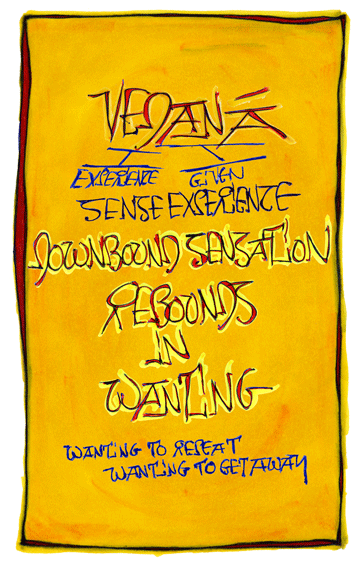 VEDANĀ
EXPERIENCE GIVEN
SENSE EXPERIENCE
DOWNBOUND SENSATION
REBOUNDS
IN
WANTING
WANTING TO REPEAT
WANTING TO GET AWAY